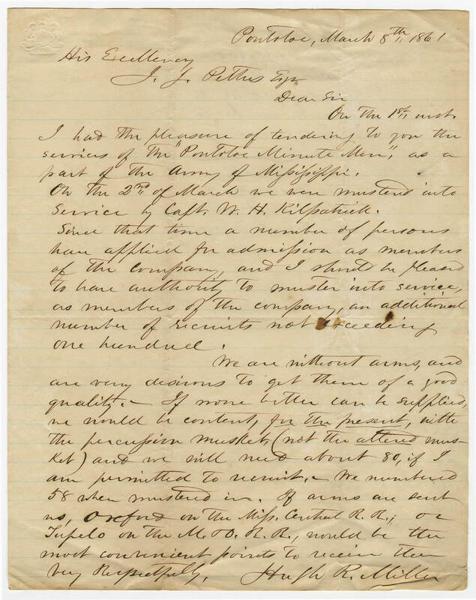 Pontotoc, March 8th, 1861
His Excellency
J. J. Pettus Esqr
Dear Sir
On the 1st, inst.
I had the pleasure of tendering to you the
services of the "Pontotoc Minute Men", as a
part of the Army of Mississippi.
On the 2nd of March we were mustered into
Service by Capt. W. H. Kilpatrick.
Since that time a number of persons
have applied for admission as members
of the company, and I should be pleased
to have authority to muster into service,
as members of the company, an additional
number of recruits not exceeding
one hundred.
We are without arms, and
are very desirous to get them of a good
quality. - If none better can be supplied,
we would be content, for the present, with
the percussion muskets (not the altered mus-
ket) and we will need about 80, if I
am permitted to recruit. - We numbered
58 when mustered in. If arms are sent
us, Oxford on the Miss. Central R. R., or
Tupelo on the M & O. R. R., would be the
most convenient points to receive them
Very Respectfully, Hugh R. Miller